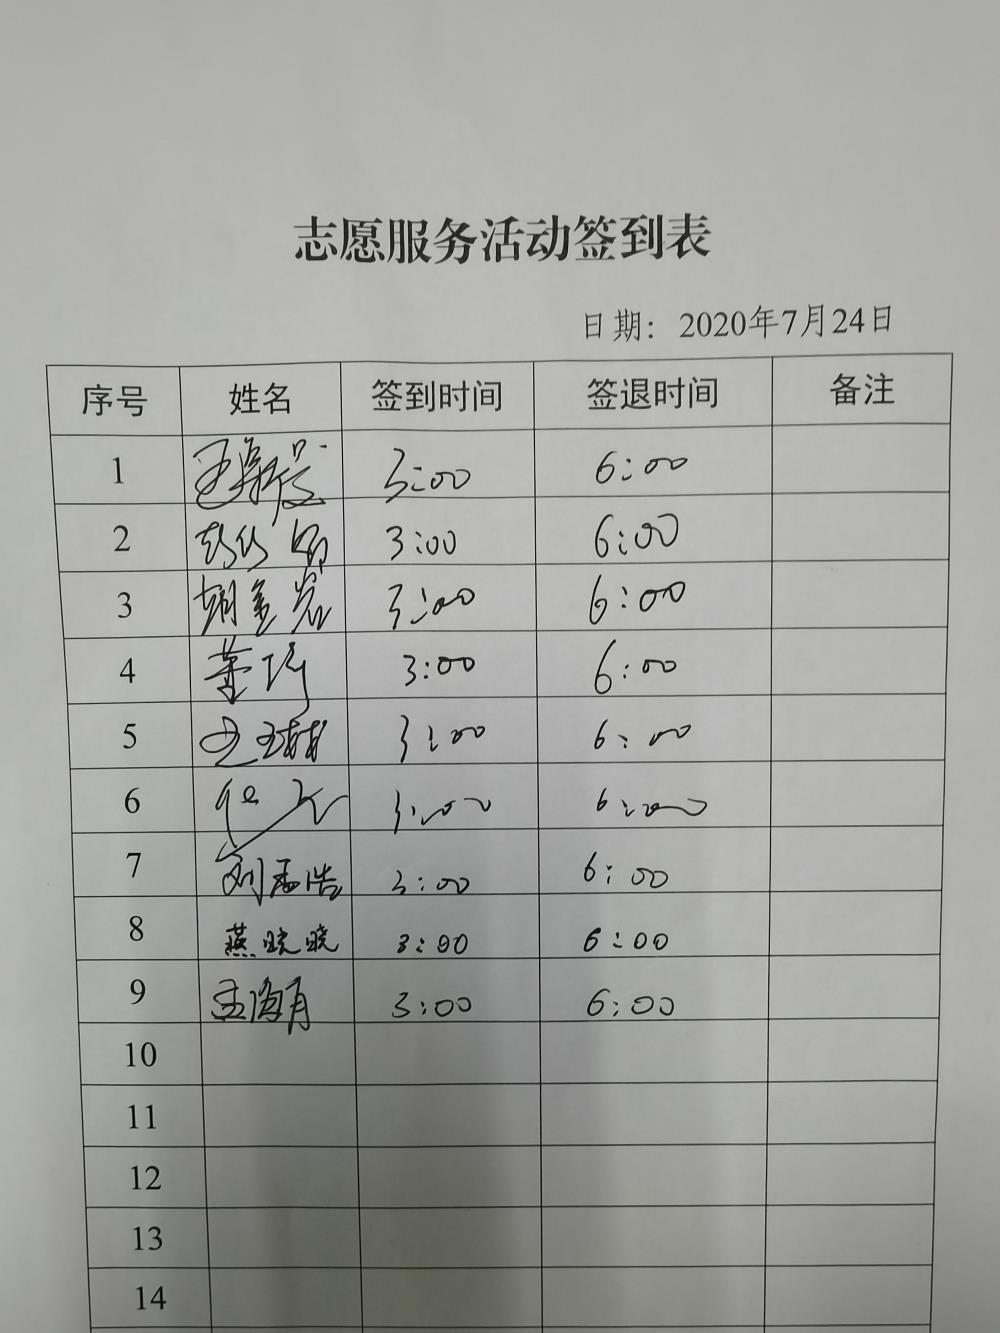 志愿服务活动签到表
日期：2020年7月24日
序号 姓名 签到时间 签退时间 备注
1 3:00 6:00
2 3:00 6:00
3 胡金岩 3:00 6:00
4 董巧 3:00 6:00
5 3:00 6:00
6 3:00 6:00
7 刘孟浩 3:00 6:00
8 燕晓晓 3:00 6:00
9 孟海月 3:00 6:00
10
11
12
13
14